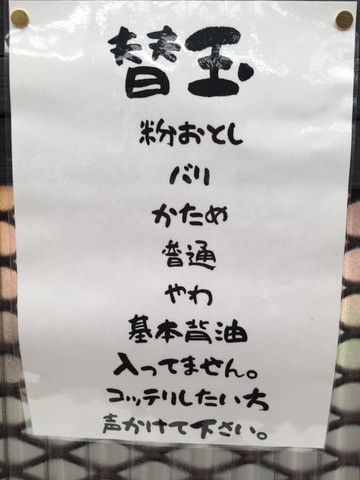 替玉
粉おとし
バリ
かため
普通
やわ
基本背油
入ってません。
コッテリしたい方
声かけて下さい。